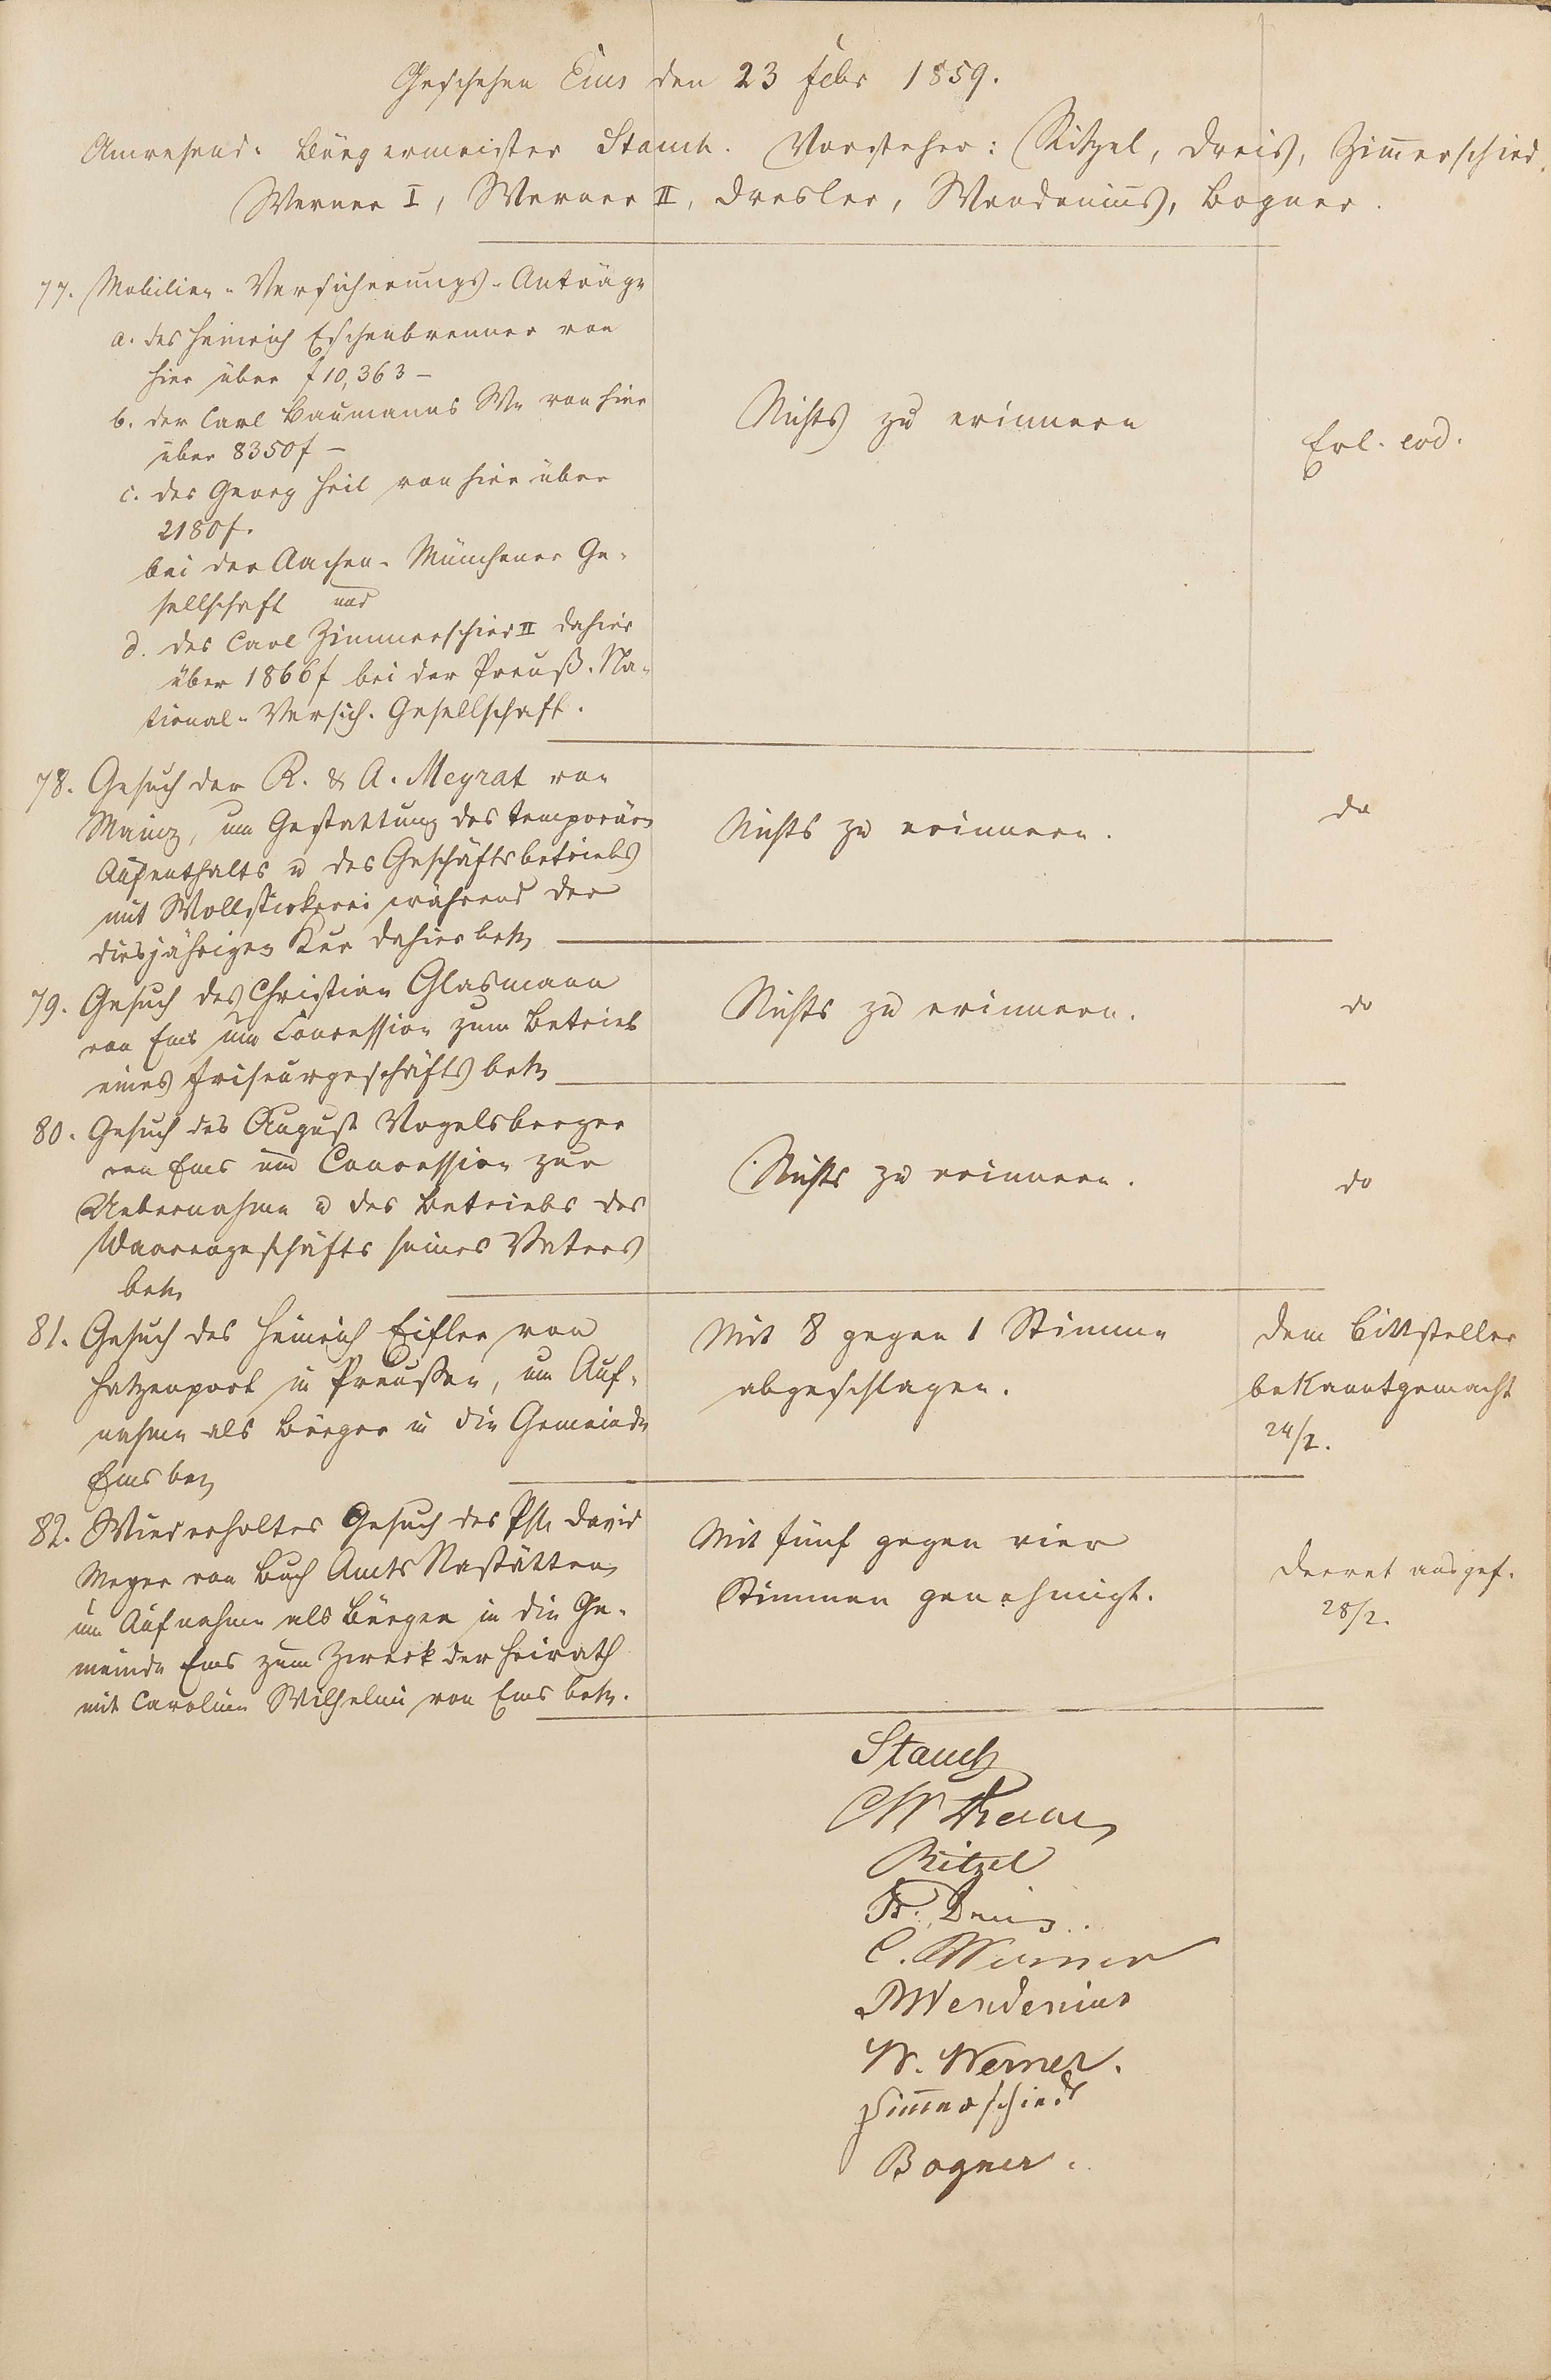 Geschehen Ems den 23 Febr 1859.
Anwesend: Bürgermeister Stauch. Vorsteher: Ritzel, Dreis, Zim̄erschied,
Werner I, Werner II, Dresler, Wendenius, Bogner.
77. Mobilien-Versicherungs-Anträge
a. des Heinrich Eschenbrenner von
hier über f 10,363 –
b. der Carl Baumanns We von hier
über 8350 f –
c. des Georg Heil von hier über
2180 f.
bei der Aachen-Münchener Ge-
sellschaft und
d. des Carl Zimmerschied II dahier
über 1866 f bei der Preuß. Na-
tional-Versich. Gesellschaft.
Nichts zu erinnern
Erl. eod.
78. Gesuch der R. & A. Meyrat von
Mainz, um Gestattung des temporären
Aufenthalts u des Geschäftsbetriebs
mit Wollstickerei während der
diesjährigen Kur dahier betr
Nichts zu erinnern.
do
79. Gesuch des Christian Glasmann
von Ems um Concession zum Betrieb
eines Friseurgeschäfts betr
Nichts zu erinnern.
do
80. Gesuch des August Vogelsberger
von Ems um Concession zur
Uebernahme u des Betriebs des
Waarengeschäfts seines Vaters
betr
Nichts zu erinnern.
do
81. Gesuch des Heinrich Eifler von
Hatzenport in Preußen, um Auf-
nahme als Bürger in die Gemeinde
Ems betr
Mit 8 gegen 1 Stimme
abgeschlagen.
Dem Bittsteller
bekanntgemacht
24/2.
82. Wiederholtes Gesuch des David
Meyer von Buch Amts Nastätten
um Aufnahme als Bürger in die Ge-
meinde Ems zum Zweck der Heirath
mit Caroline Wilhelmi von Ems betr.
Mit fünf gegen vier
Stimmen genehmigt.
Decret ausgef.
28/2.
Stauch
Ritzel
Fr. Dreis.
C. Werner
Wendenius
W. Werner.
Zim̄erschied
Bogner.